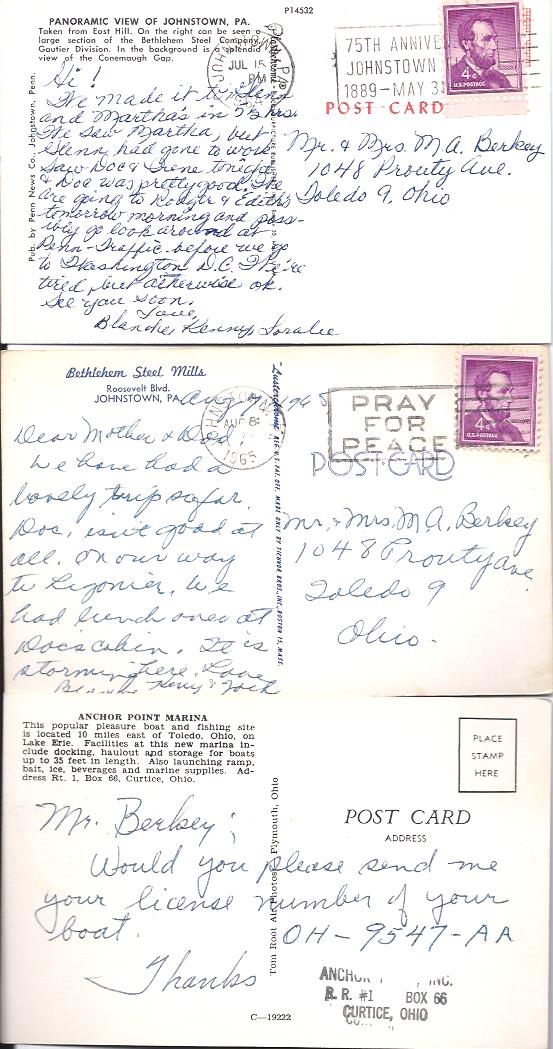 P14532
PANORAMIC VIEW OF JOHNSTOWN, PA.
Taken from East Hill. On the right can be seen a
large section of the Bethlehem Steel Company,
Gautier Division. In the background is a splendid
view of the Conemaugh Gap.
Pub. by Penn News Co., Johnstown, Penn.
Plastichrome
JUL 15
PM
75TH ANNIVE
JOHNSTOWN
1889-MAY 31
4¢
U.S. POSTAGE
POST CARD
Hi!
We made it to Glenn
and Martha's in 5½ hrs.
We saw Martha, but
Glenn had gone to work
Saw Doc & Irene tonight
& Doc was pretty good. We
are going to Rodger & Edith's
tomorrow morning and poss-
ibly go look around at
Penn-Traffic before we go
to Washington D.C. We're
tired, but otherwise ok.
See you soon.
Love,
Blanche, Kenny, Loralee
Mr. & Mrs. M.A. Berkey
1048 Prouty Ave.
Toledo 9, Ohio
Bethlehem Steel Mills
Roosevelt Blvd.
JOHNSTOWN, PA.
Aug 7, 1965
JOHNSTOWN
AUG 8
1965
PRAY
FOR
PEACE
4¢
U.S. POSTAGE
POST CARD
"Lusterchrome" REG. U.S. PAT. OFF. MADE ONLY BY TICHNOR BROS., INC., BOSTON 15, MASS.
Dear Mother & Dad
We have had a
lovely trip so far.
Doc, isn't good at
all. On our way
to Ligonier. We
had lunch once at
Doc's cabin. It is
storming here. Love
Blanche Keny & Jack
Mr. & Mrs. M.A. Berkey
1048 Prouty ave
Toledo 9
Ohio.
ANCHOR POINT MARINA
This popular pleasure boat and fishing site
is located 10 miles east of Toledo, Ohio, on
Lake Erie. Facilities at this new marina in-
clude docking, haulout and storage for boats
up to 35 feet in length. Also launching ramp,
bait, ice, beverages and marine supplies. Ad-
dress Rt. 1, Box 66, Curtice, Ohio.
PLACE
STAMP
HERE
POST CARD
ADDRESS
Tom Root Air Photos, Plymouth, Ohio
Mr. Berkey;
Would you please send me
your license number of your
boat. OH-9547-AA
Thanks
ANCHOR INC.
R. R. #1 BOX 66
CURTICE, OHIO
C—19222